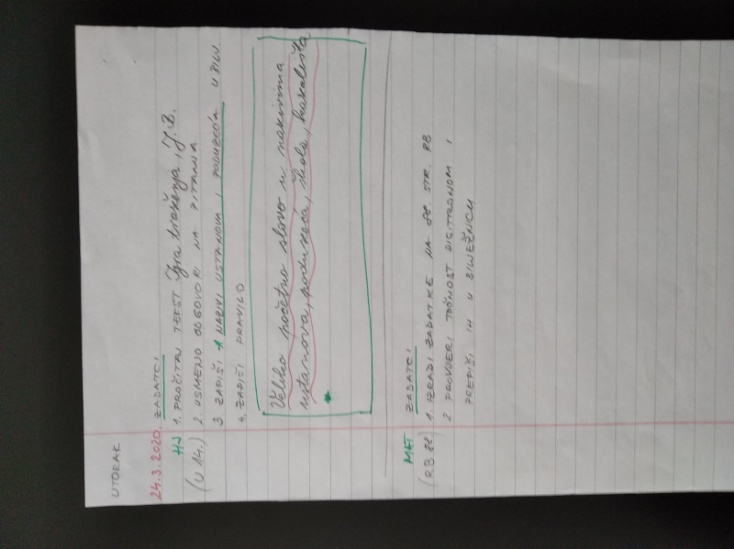 UTORAK
24.3.2020. ZADATCI
HJ 1. PROČITAJ TEKST Igra traženja, J.B.
(U 14.) 2. USMENO ODGOVORI NA PITANJA
3 ZAPIŠI * NAZIVI USTANOVA I PODUZEĆA U BILJ.
4. ZAPIŠI PRAVILO
Veliko početno slovo u nazivima
ustanova, poduzeća, škola, kazališta
*
MAT ZADATCI
(RB 88) 1. IZRADI ZADATKE NA 88 STR. RB
2 PROVJERI TOČNOST DIGITRONOM I
PREPIŠI IH U BILJEŽNICU